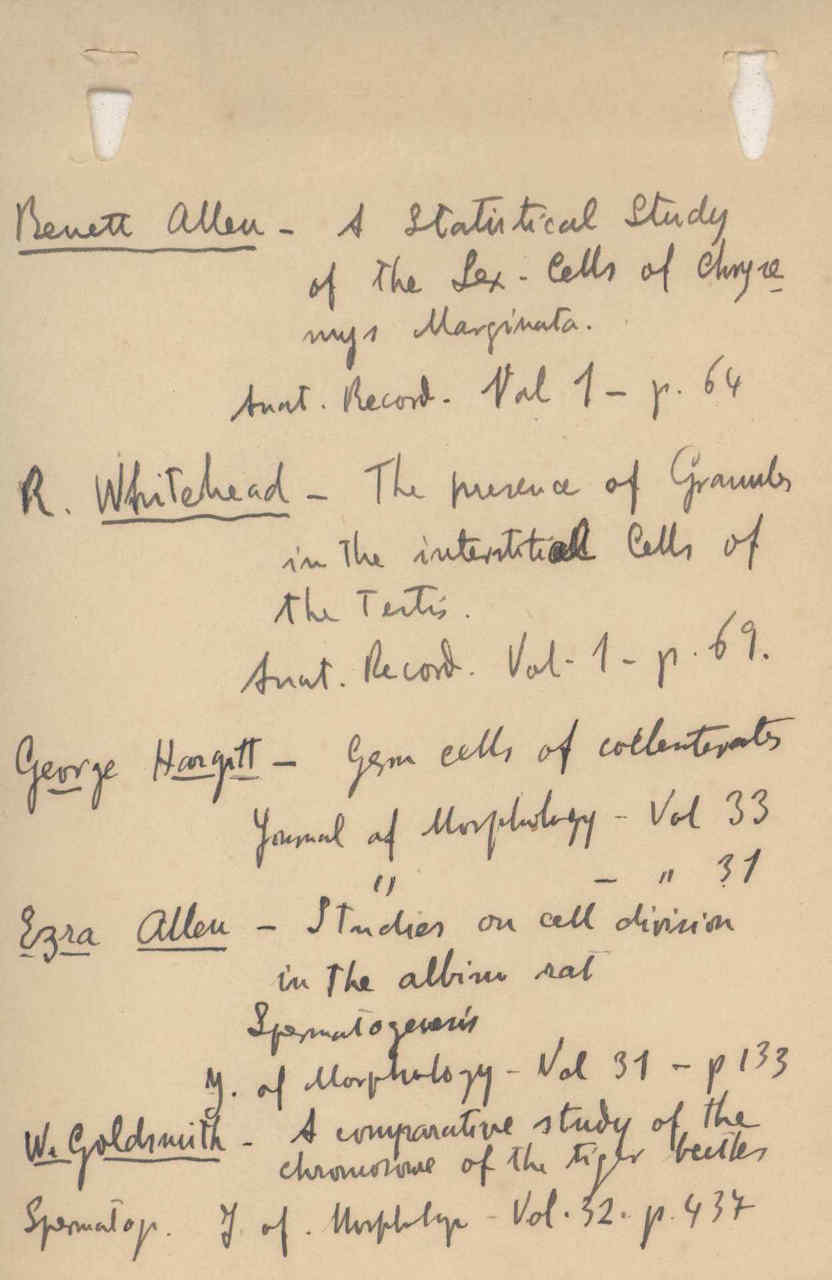 Benett Allen - A Statistical Study
of the Sex-Cells of Chryse
mys Marginata.
Anat. Record. Vol 1 - p. 64
R. Whitehead - The presence of Granules
in the interstitial Cells of
the Testis.
Anat. Record. Vol. 1 - p. 69.
George Hargitt - Germ cells of coelenterates
Journal of Morphology - Vol 33
" - " 31
Ezra Allen - Studies on cell division
in the albino rat
Spermatogenesis
J. of Morphology - Vol 31 - p 133
W. Goldsmith - A comparative study of the
chromosome of the tiger beetles
Spermatog. J. of. Morphology - Vol. 32. p. 437